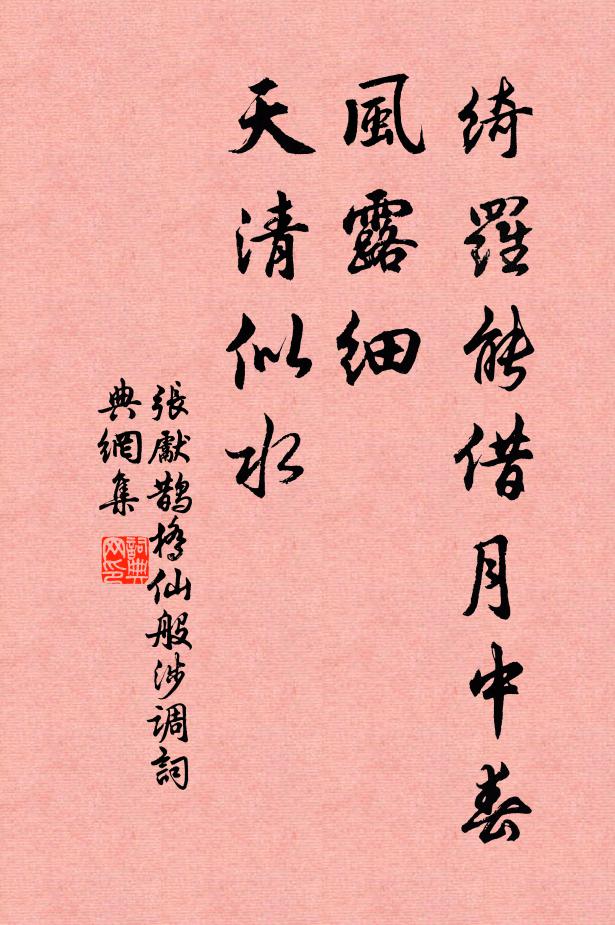 綺羅能借月中春
風露細
天清似水
張獻鵲橋仙般涉調詞
典網集
詞典
网印